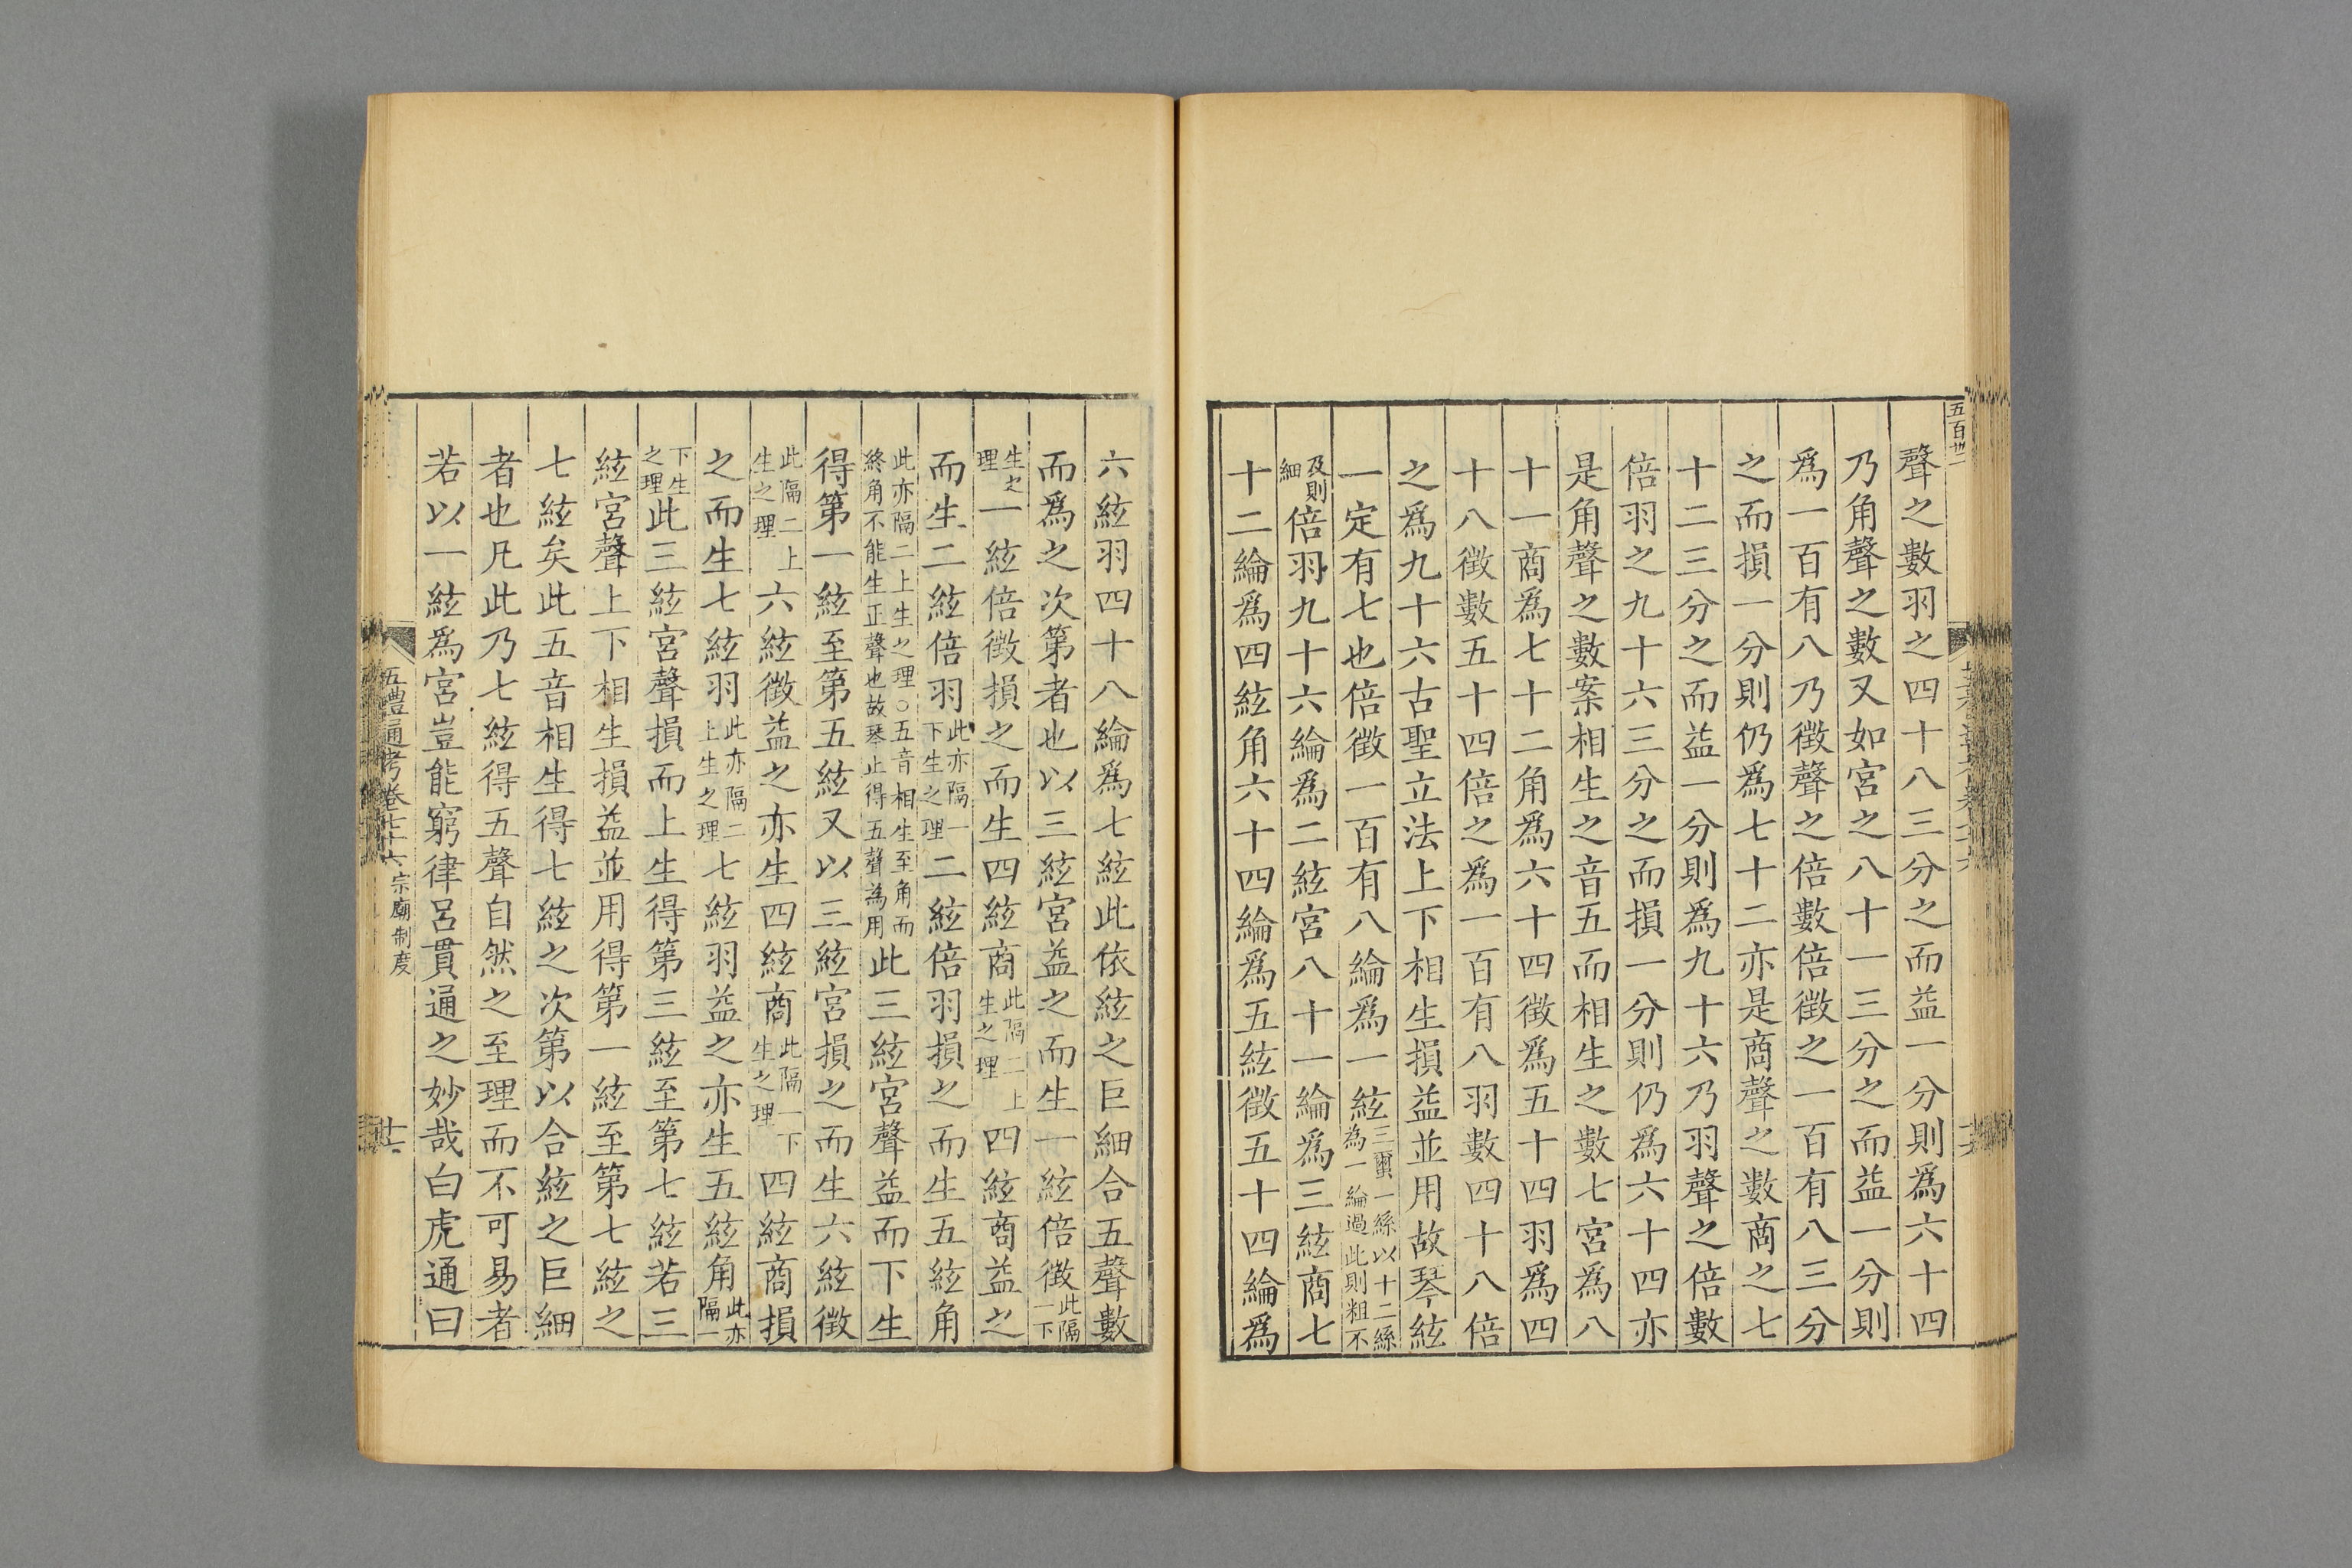 五百卅二
聲之數羽之四十八三分之而益一分則爲六十四
乃角聲之數又如宮之八十一三分之而益一分則
爲一百有八乃徵聲之倍數倍徵之一百有八三分
之而損一分則仍爲七十二亦是商聲之數商之七
十二三分之而益一分則爲九十六乃羽聲之倍數
倍羽之九十六三分之而損一分則仍爲六十四亦
是角聲之數案相生之音五而相生之數七宮爲八
十一商爲七十二角爲六十四徵爲五十四羽爲四
十八徵數五十四倍之爲一百有八羽數四十八倍
之爲九十六古聖立法上下相生損益並用故琴絃
一定有七也倍徵一百有八綸爲一絃三蠶一絲以十二絲為一綸過此則粗不
及則細倍羽九十六綸爲二絃宮八十一綸爲三絃商七
十二綸爲四絃角六十四綸爲五絃徵五十四綸爲
六絃羽四十八綸爲七絃此依絃之巨細合五聲數
而爲之次第者也以三絃宮益之而生一絃倍徵此隔一下
生之理一絃倍徵損之而生四絃商此隔二上生之理四絃商益之
而生二絃倍羽此亦隔一下生之理二絃倍羽損之而生五絃角
此亦隔二上生之理○五音相生至角而終角不能生正聲也故琴止得五聲為用此三絃宮聲益而下生
得第一絃至第五絃又以三絃宮損之而生六絃徵
此隔二上生之理六絃徵益之亦生四絃商此隔一下生之理四絃商損
之而生七絃羽此亦隔二上生之理七絃羽益之亦生五絃角此亦隔一
下生之理此三絃宮聲損而上生得第三絃至第七絃若三
絃宮聲上下相生損益並用得第一絃至第七絃之
七絃矣此五音相生得七絃之次第以合絃之巨細
者也凡此乃七絃得五聲自然之至理而不可易者
若以一絃爲宮豈能窮律呂貫通之妙哉白虎通曰
五禮通考卷七十六 宗廟制度